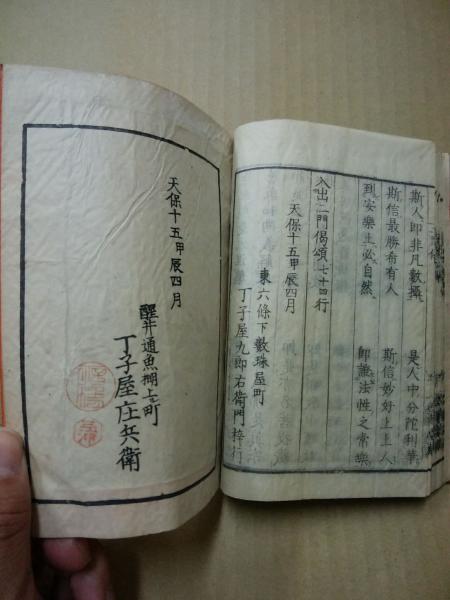 斯人即非凡數攝 是人中分陀利華
斯信最勝希有人 斯信妙好上上人
到安樂土必自然 即證法性之常樂
入出二門偈頌 七十四行
天保十五甲辰四月
東六條下數珠屋町
丁子屋九郎右衛門梓行
天保十五甲辰四月
醒井通魚棚上町
丁子屋庄兵衛